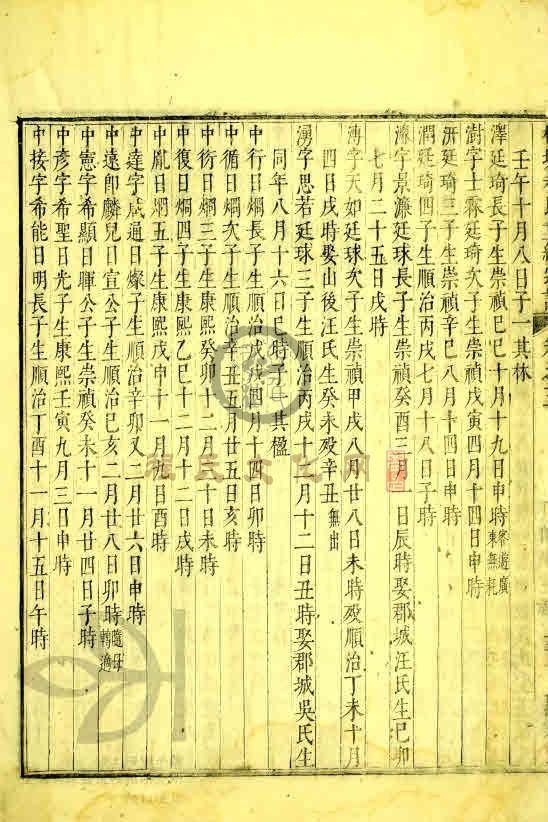 壬午十月八日子一其林
澤廷琦長子生崇禎己巳十月十九日申時客遊廣東無耗
澍字士霖廷琦次子生崇禎戊寅四月十四日申時
汧廷琦三子生崇禎辛巳八月十四日申時
澗廷琦四子生順治丙戌七月十八日子時
濂字景濂廷球長子生崇禎癸酉三月一日辰時娶郡城汪氏生己卯
七月二十五日戌時
溥字天如廷球次子生崇禎甲戌八月廿八日未時殁順治丁未十月
四日戌時娶山後汪氏生癸未殁辛丑無出
湧字思若廷球三子生順治丙戌十二月十二日丑時娶郡城吳氏生
同年八月十六日巳時子一其楹
中行日烱長子生順治戊戌四月十四日卯時
中循日烱次子生順治辛丑五月廿五日亥時
中衍日烱三子生康熙癸卯十二月二十日未時
中復日烱四子生康熙乙巳十二月十二日戌時
中胤日烱五子生康熙戊申十一月九日酉時
中達字咸通日燦子生順治辛卯又二月廿六日申時
中遠卽麟兒日宣公子生順治己亥二月廿八日卯時隨母轉適
中憲字希顯日暉公子生崇禎癸未十一月廿四日子時
中彥字希聖日光子生康熙壬寅九月三日申時
中接字希能日明長子生順治丁酉十一月十五日午時